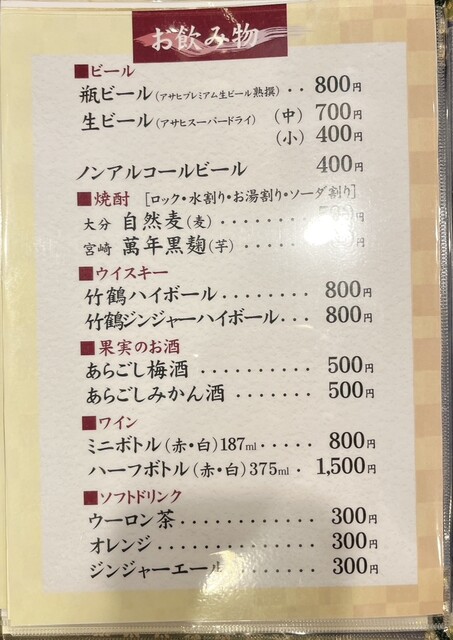 お飲み物
■ビール
瓶ビール(アサヒプレミアム生ビール熟撰)・・800円
生ビール(アサヒスーパードライ) (中)700円
(小)400円
ノンアルコールビール 400円
■焼酎 [ロック・水割り・お湯割り・ソーダ割り]
大分 自然麦(麦)・・・・・・・・ 円
宮崎 萬年黒麹(芋)・・・・・・ 円
■ウイスキー
竹鶴ハイボール・・・・・・・・800円
竹鶴ジンジャーハイボール・・・800円
■果実のお酒
あらごし梅酒・・・・・・・・・・500円
あらごしみかん酒・・・・・・・500円
■ワイン
ミニボトル(赤・白)187ml・・・・・800円
ハーフボトル(赤・白)375ml・1,500円
■ソフトドリンク
ウーロン茶・・・・・・・・・・・・300円
オレンジ・・・・・・・・・・・・・・300円
ジンジャーエール・・・・・・・・300円